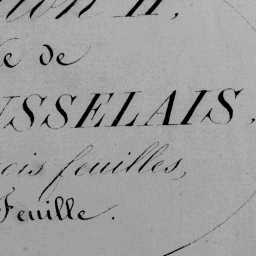 tion II,
de
USSELAIS,
ois feuilles,
Feuille.